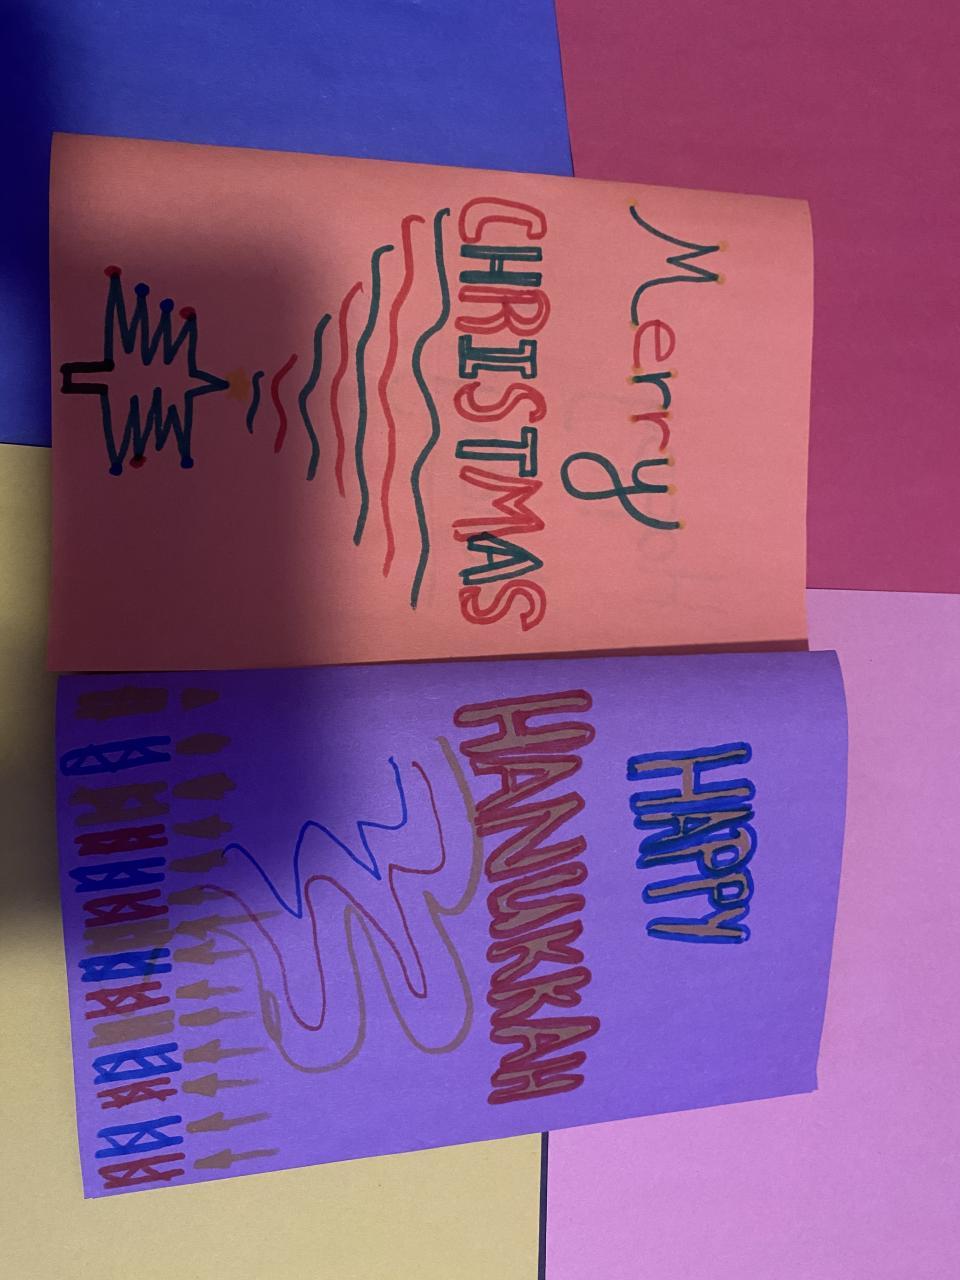 Merry
CHRISTMAS
HAPPY
HANUKKAH